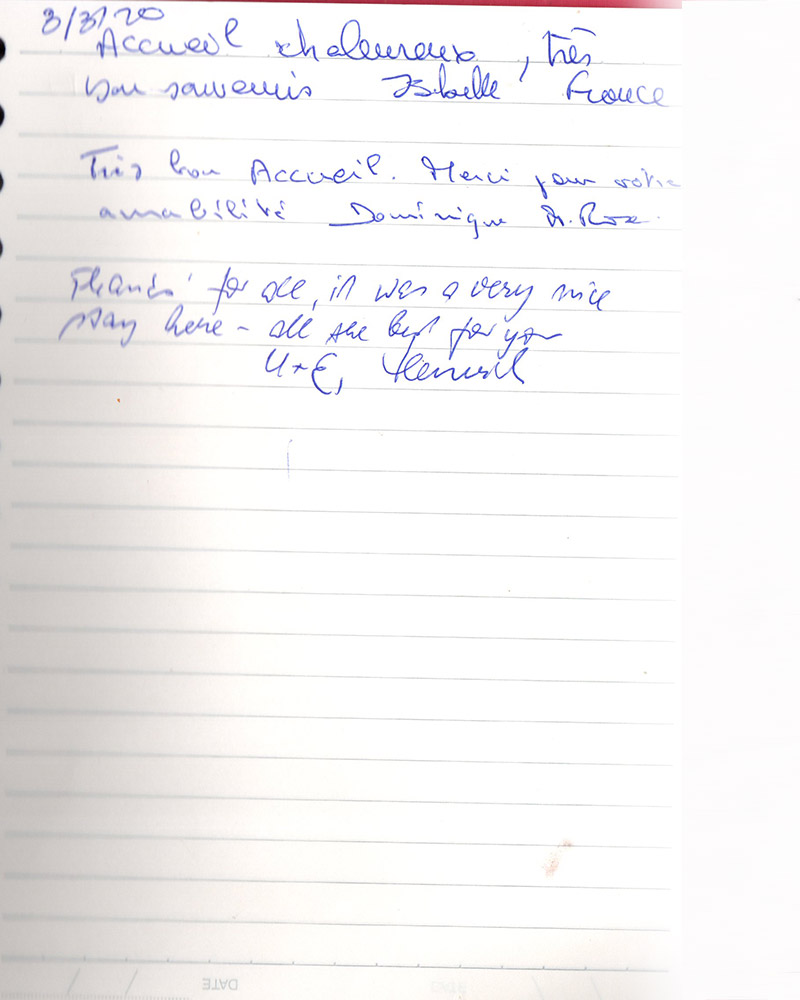 3/3/20
Accueil chaleureux, très
bon souvenirs Isbelle France
Très bon Accueil. Merci pour votre
amabilité Dominique
Thanks for all, it was a very nice
stay here - all the best for you
U + E,
DATE